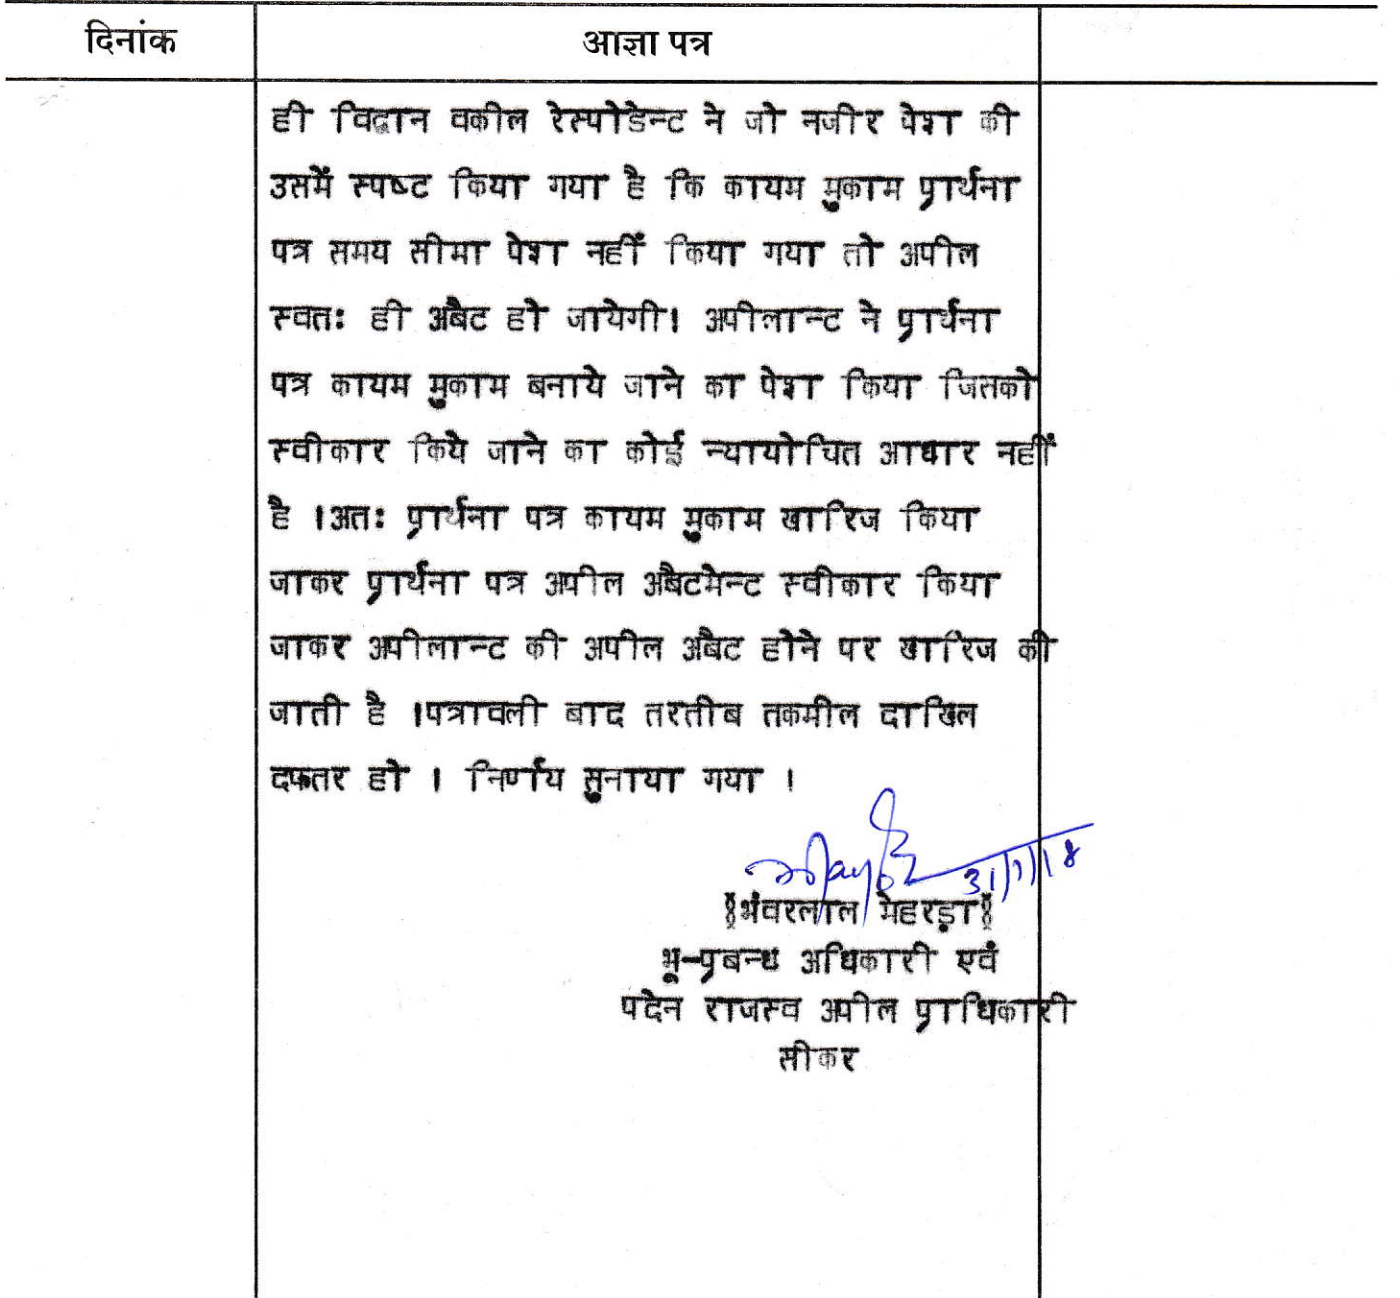 दिनांक आज्ञा पत्र
ही विद्वान वकील रेस्पोडेन्ट ने जो नजीर पेश की
उसमें स्पष्ट किया गया है कि कायम मुकाम प्रार्थना
पत्र समय सीमा पेश नहीं किया गया तो अपील
स्वतः ही अबैट हो जायेगी। अपीलान्ट ने प्रार्थना
पत्र कायम मुकाम बनाये जाने का पेश किया जितको
स्वीकार किये जाने का कोई न्यायोचित आधार नहीं
है ।अतः प्रार्थना पत्र कायम मुकाम खारिज किया
जाकर प्रार्थना पत्र अपील अबैटमेन्ट स्वीकार किया
जाकर अपीलान्ट की अपील अबैट होने पर खारिज की
जाती है ।पत्रावली बाद तरतीब तकमील दाखिल
दफतर हो । निर्णय सुनाया गया ।
31/1/18
भंवरलाल मेहरड़ा
भू-प्रबन्ध अधिकारी एवं
पदेन राजस्व अपील प्राधिकारी
सीकर